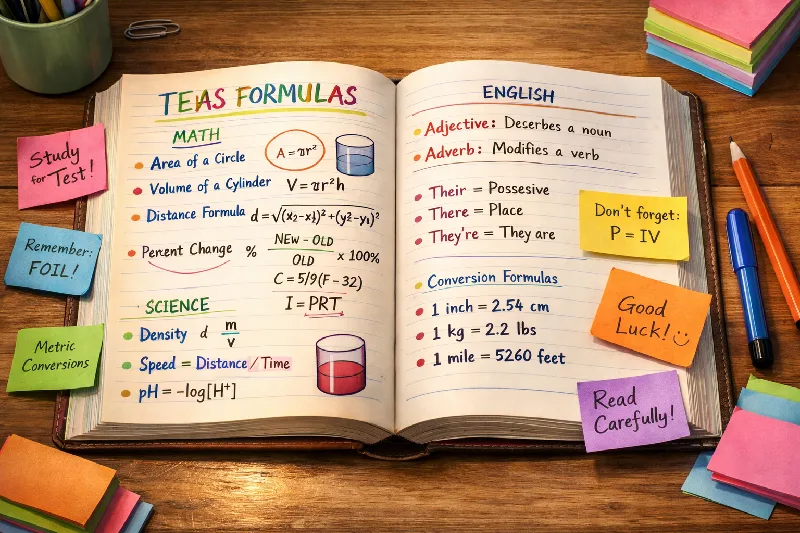 TEAS FORMULAS
MATH
Area of a Circle A = πr²
Volume of a Cylinder V = πr²h
Distance Formula d = √(x₂ - x₁)² + (y² - y₁)²
Percent Change % NEW - OLD
OLD x 100%
C = 5/9(F - 32)
I = PRT
SCIENCE
Density d m
v
Speed = Distance / Time
pH = -log[H⁺]
ENGLISH
Adjective: Deserbes a noun
Adverb: Modifies a verb
Their = Possesive
There = Place
They're = They are
Conversion Formulas
1 inch = 2.54 cm
1 kg = 2.2 lbs
1 mile = 5260 feet
Study
for Test!
Remember:
FOIL!
Metric
Conversions
Don't forget:
P = IV
Good
Luck!
Read
Carefully!